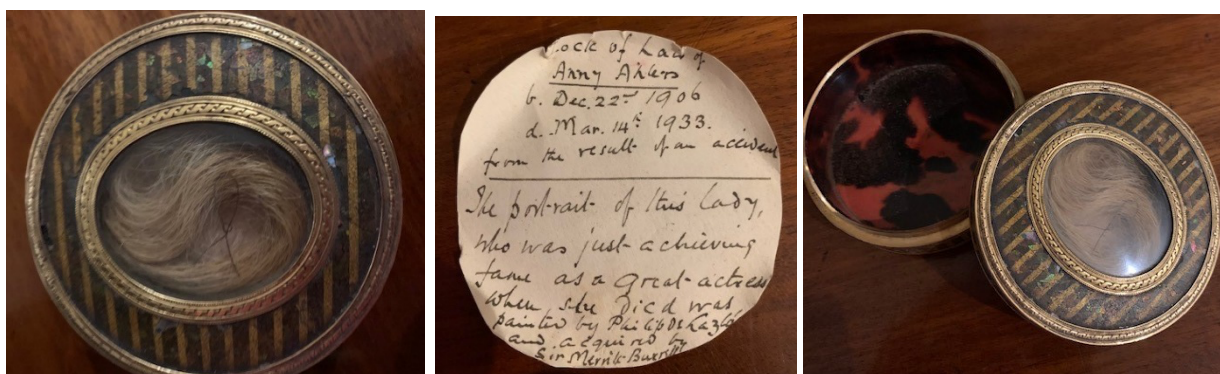 Lock of hair of
Anny Ahlers
b. Dec. 22nd 1906
d. Mar. 14th 1933.
from the result of an accident
The portrait of this lady,
who was just achieving
fame as a great actress
when she died was
painted by Philip de Laszlo
and acquired by
Sir Merrik Burrell